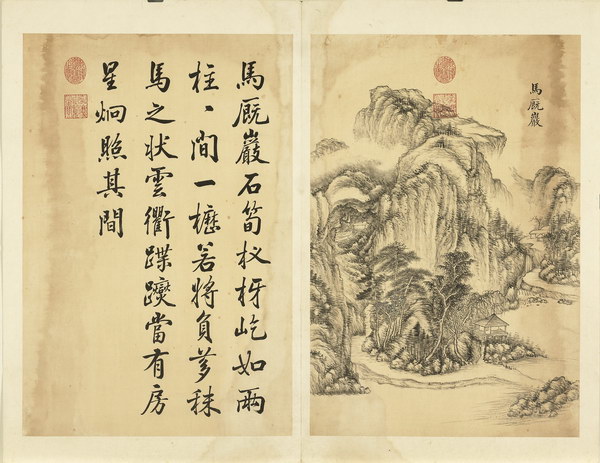 馬厩巖
馬厩巖石筍杈枒屹如兩
柱丶間一櫪若將負芻秣
馬之狀雲衢蹀躞當有房
星炯照其間